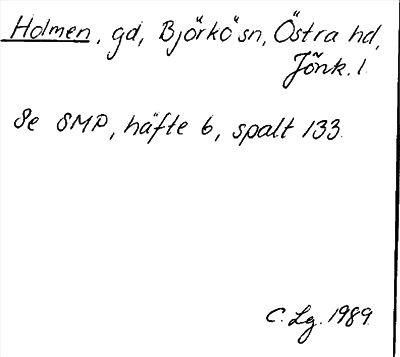 Holmen, gd, Björkö sn, Östra hd,
Jönk. l.
Se SMP, häfte 6, spalt 133.
C. Lg. 1989.